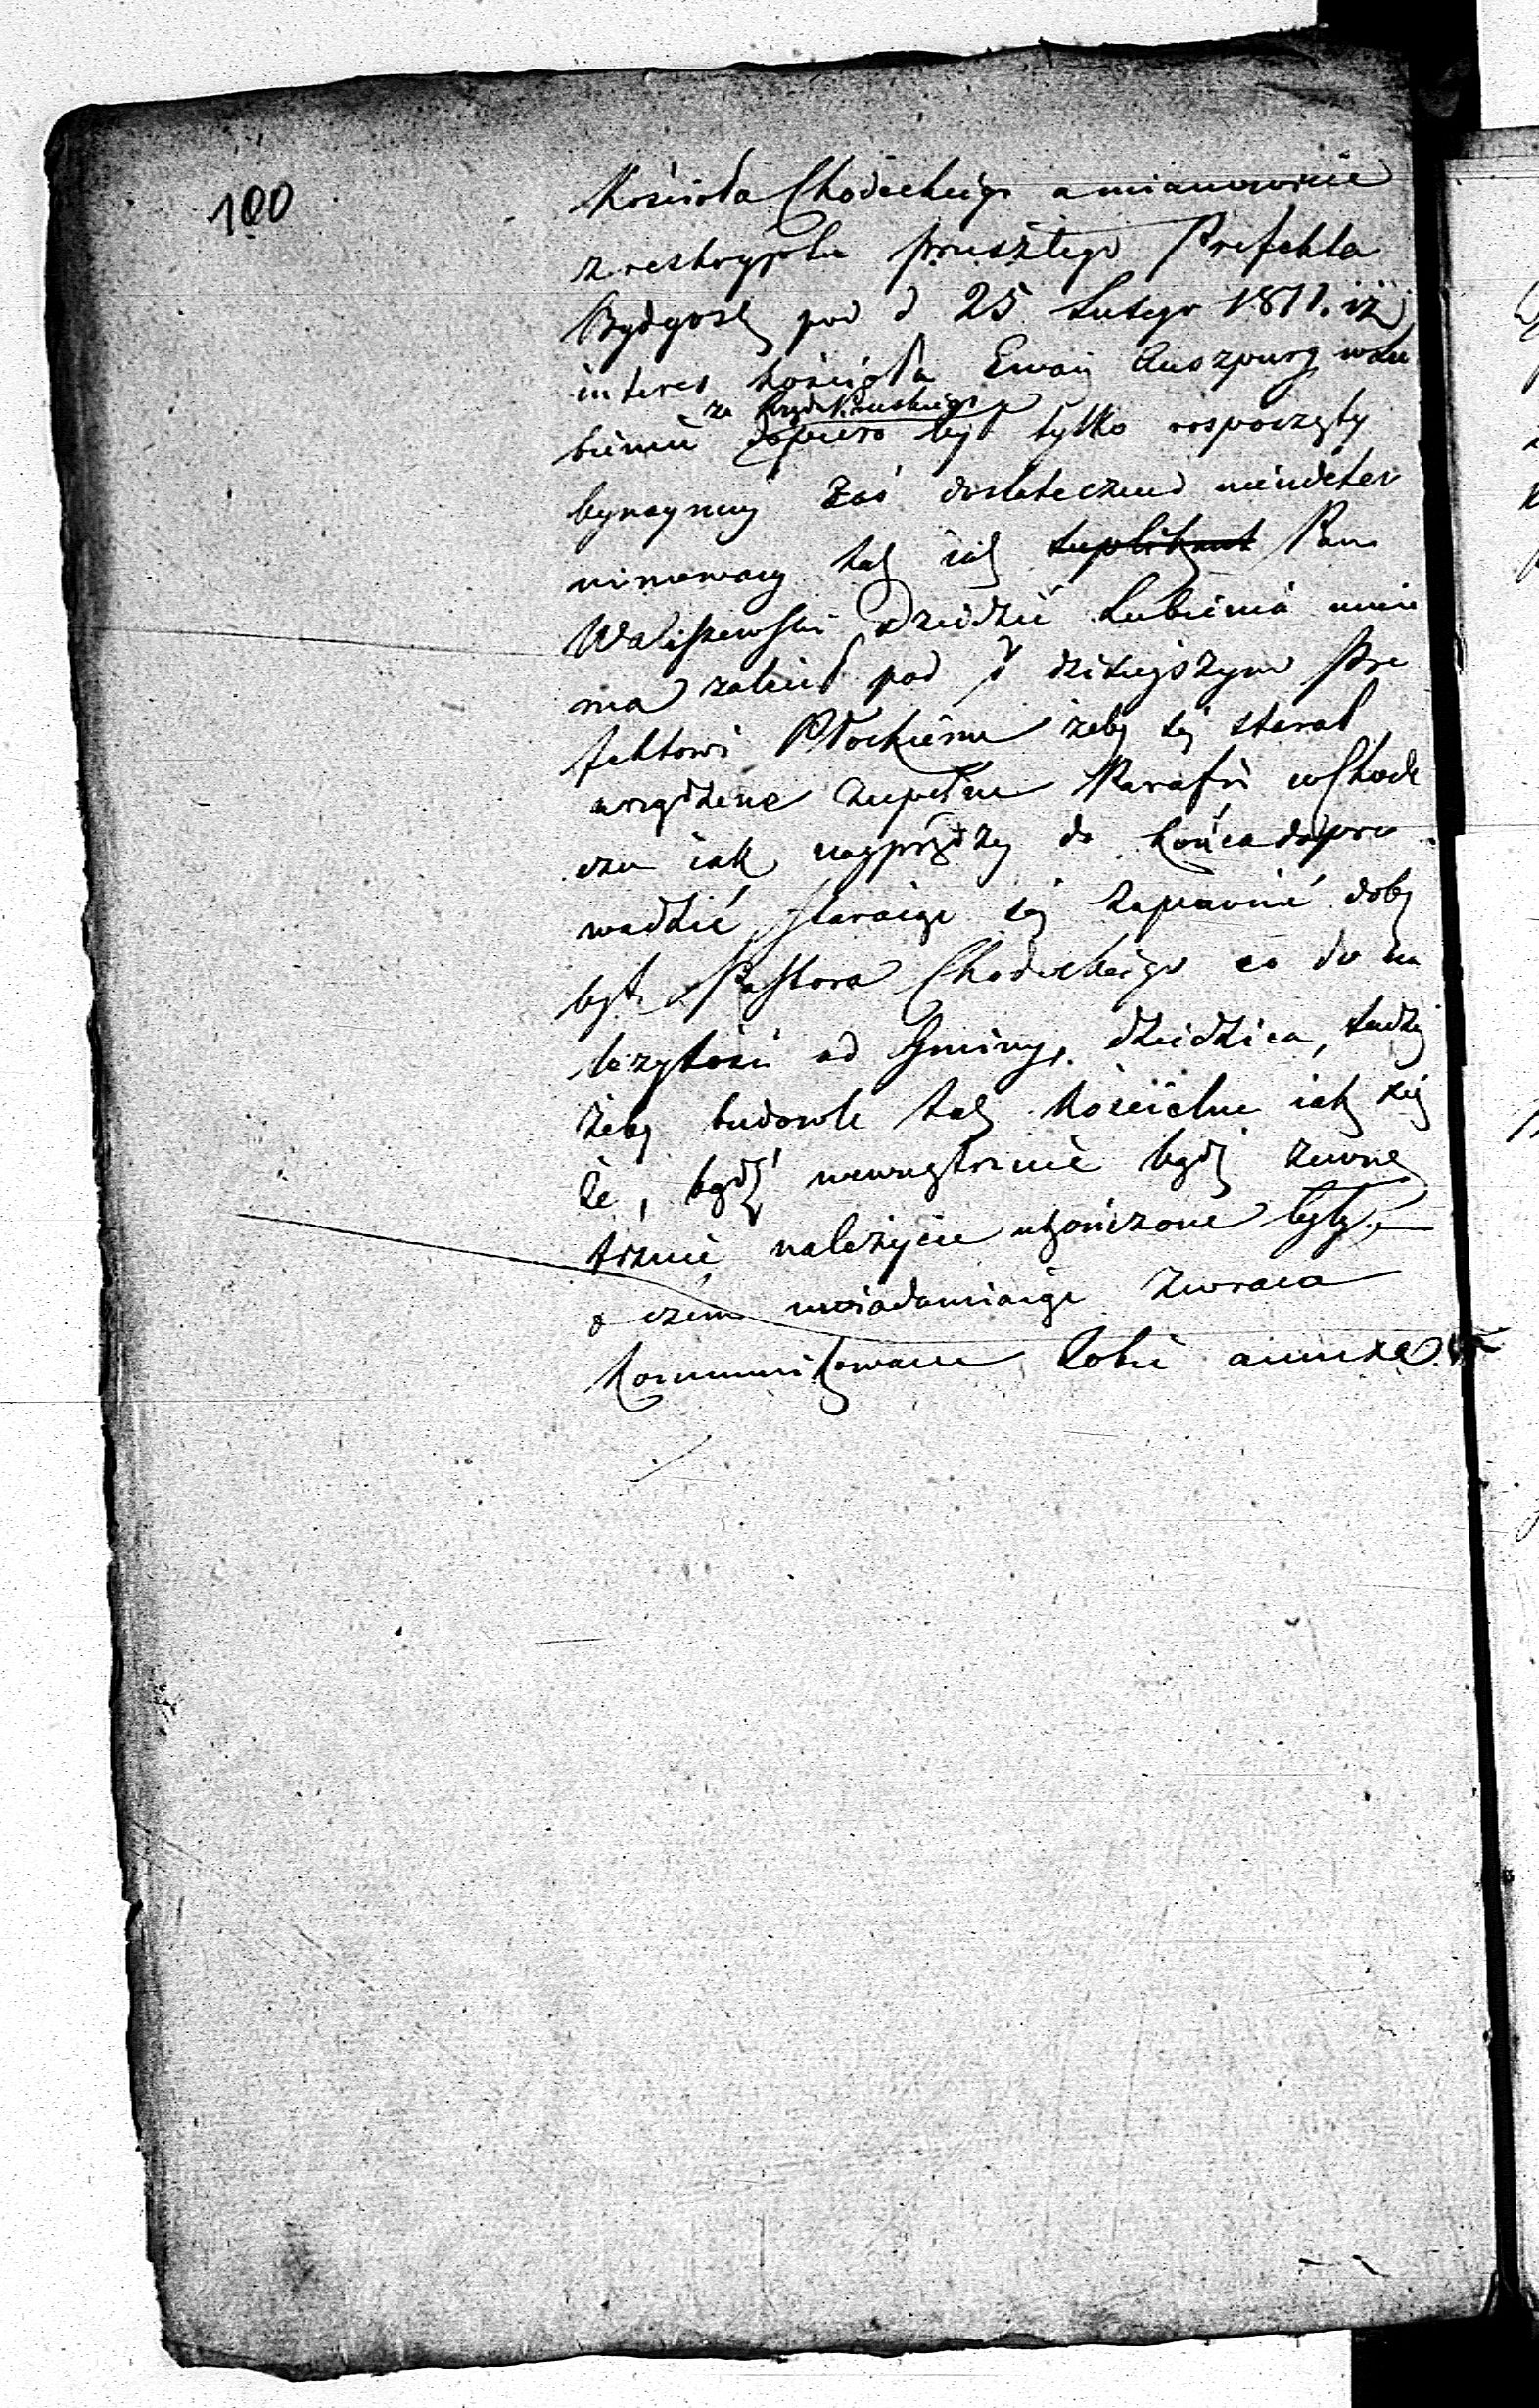 100
Kościoła Chodeckiego a mianowicie
z reskryptu przeszłego Prefekta
Bydgosk pod d 25 Lutego 1811. iż
interes kościoła Ewan Auszpurg w Lu
bieniu dopiero był tylko rospoczęty
za Rządu Pruskiego
bynaymniey zaś dostatecznie niedeter
minowany tak iak suplikant Pan
Waliszewski Dziedzic Lubienia mnie
ma zalecił pod d dzisiejszym Pre
fektowi Płockiemu żeby się starał
urządzenie zupełne Parafii w Chode
czu iak nayprędzey do końca dopro
wadzić staraiąc się zapewnić doby
byt Pastora Chodeckiego co do na
leżytości od Gminy, dziedzica, tudzież
żeby budowle tak Kościelne iak
że, bądź wewnętrznie bądź zewnę
trznie należycie ukończone były,
o czém uwiadamiaiąc zwraca
Kommunikowane Sobie annexa.